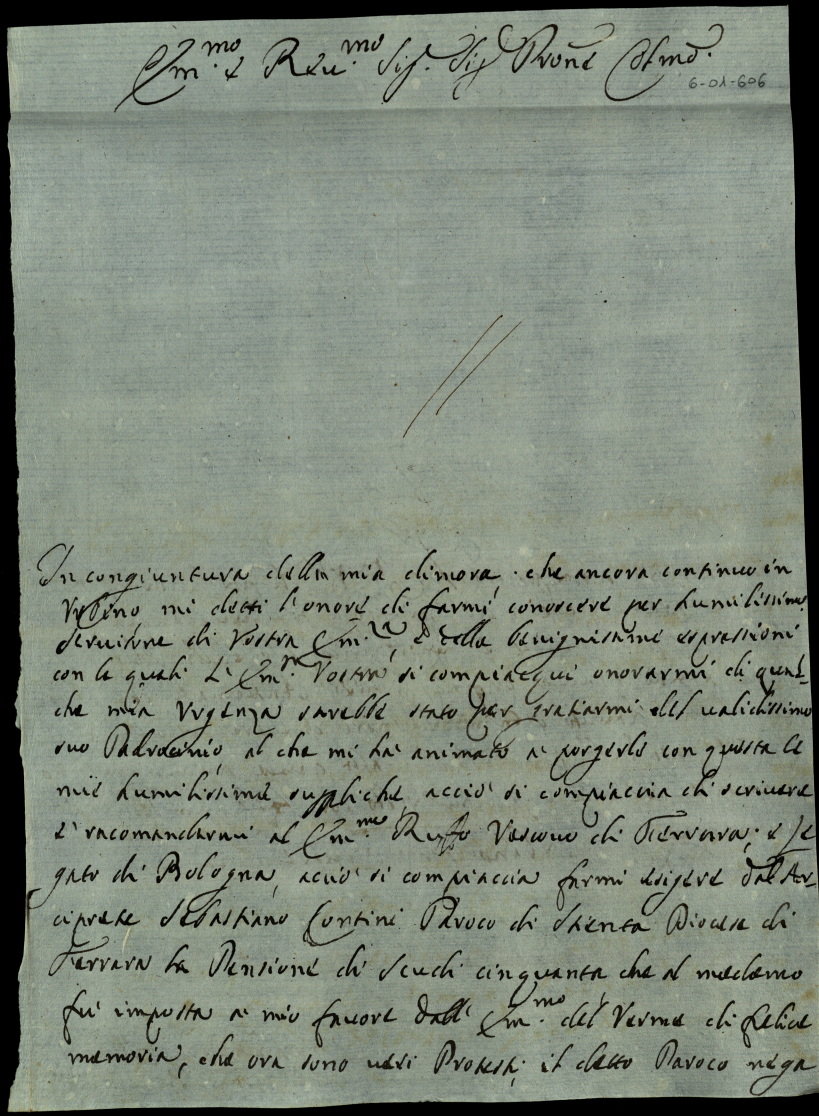 Em.mo e Reu.mo Sig. Sig. Prone Colmo.
6-01-606
In congiuntura della mia dimora che ancora continuo in
Vrbino mi detti l'onore di farmi conoscere per humilissimo
Seruitore di Vostra Em.za, e dalle benignissime espressioni
con le quali L'Em.za Vostra si compiacque onorarmi di qual=
che mia Vrgenza sarebbe stato per gratiarmi del ualidissimo
suo Padrocinio, al che mi hà animato a porgerle con questa le
mie humilissime suppliche, acciò si compiaccia di scriuere
e racomandarmi al Em.mo Ruffo Vescouo di Ferrara, e Le
gato di Bologna, acciò si compiaccia farmi esigere dal Ar=
ciprete Sebastiano Contini Paroco di Stienta Diocese di
Ferrara la Pensione di Scudi cinquanta che al medemo
fù imposta a mio fauore dall' Em.mo del Verme di felice
memoria, che ora sono uesi Protesti, il detto Paroco nega